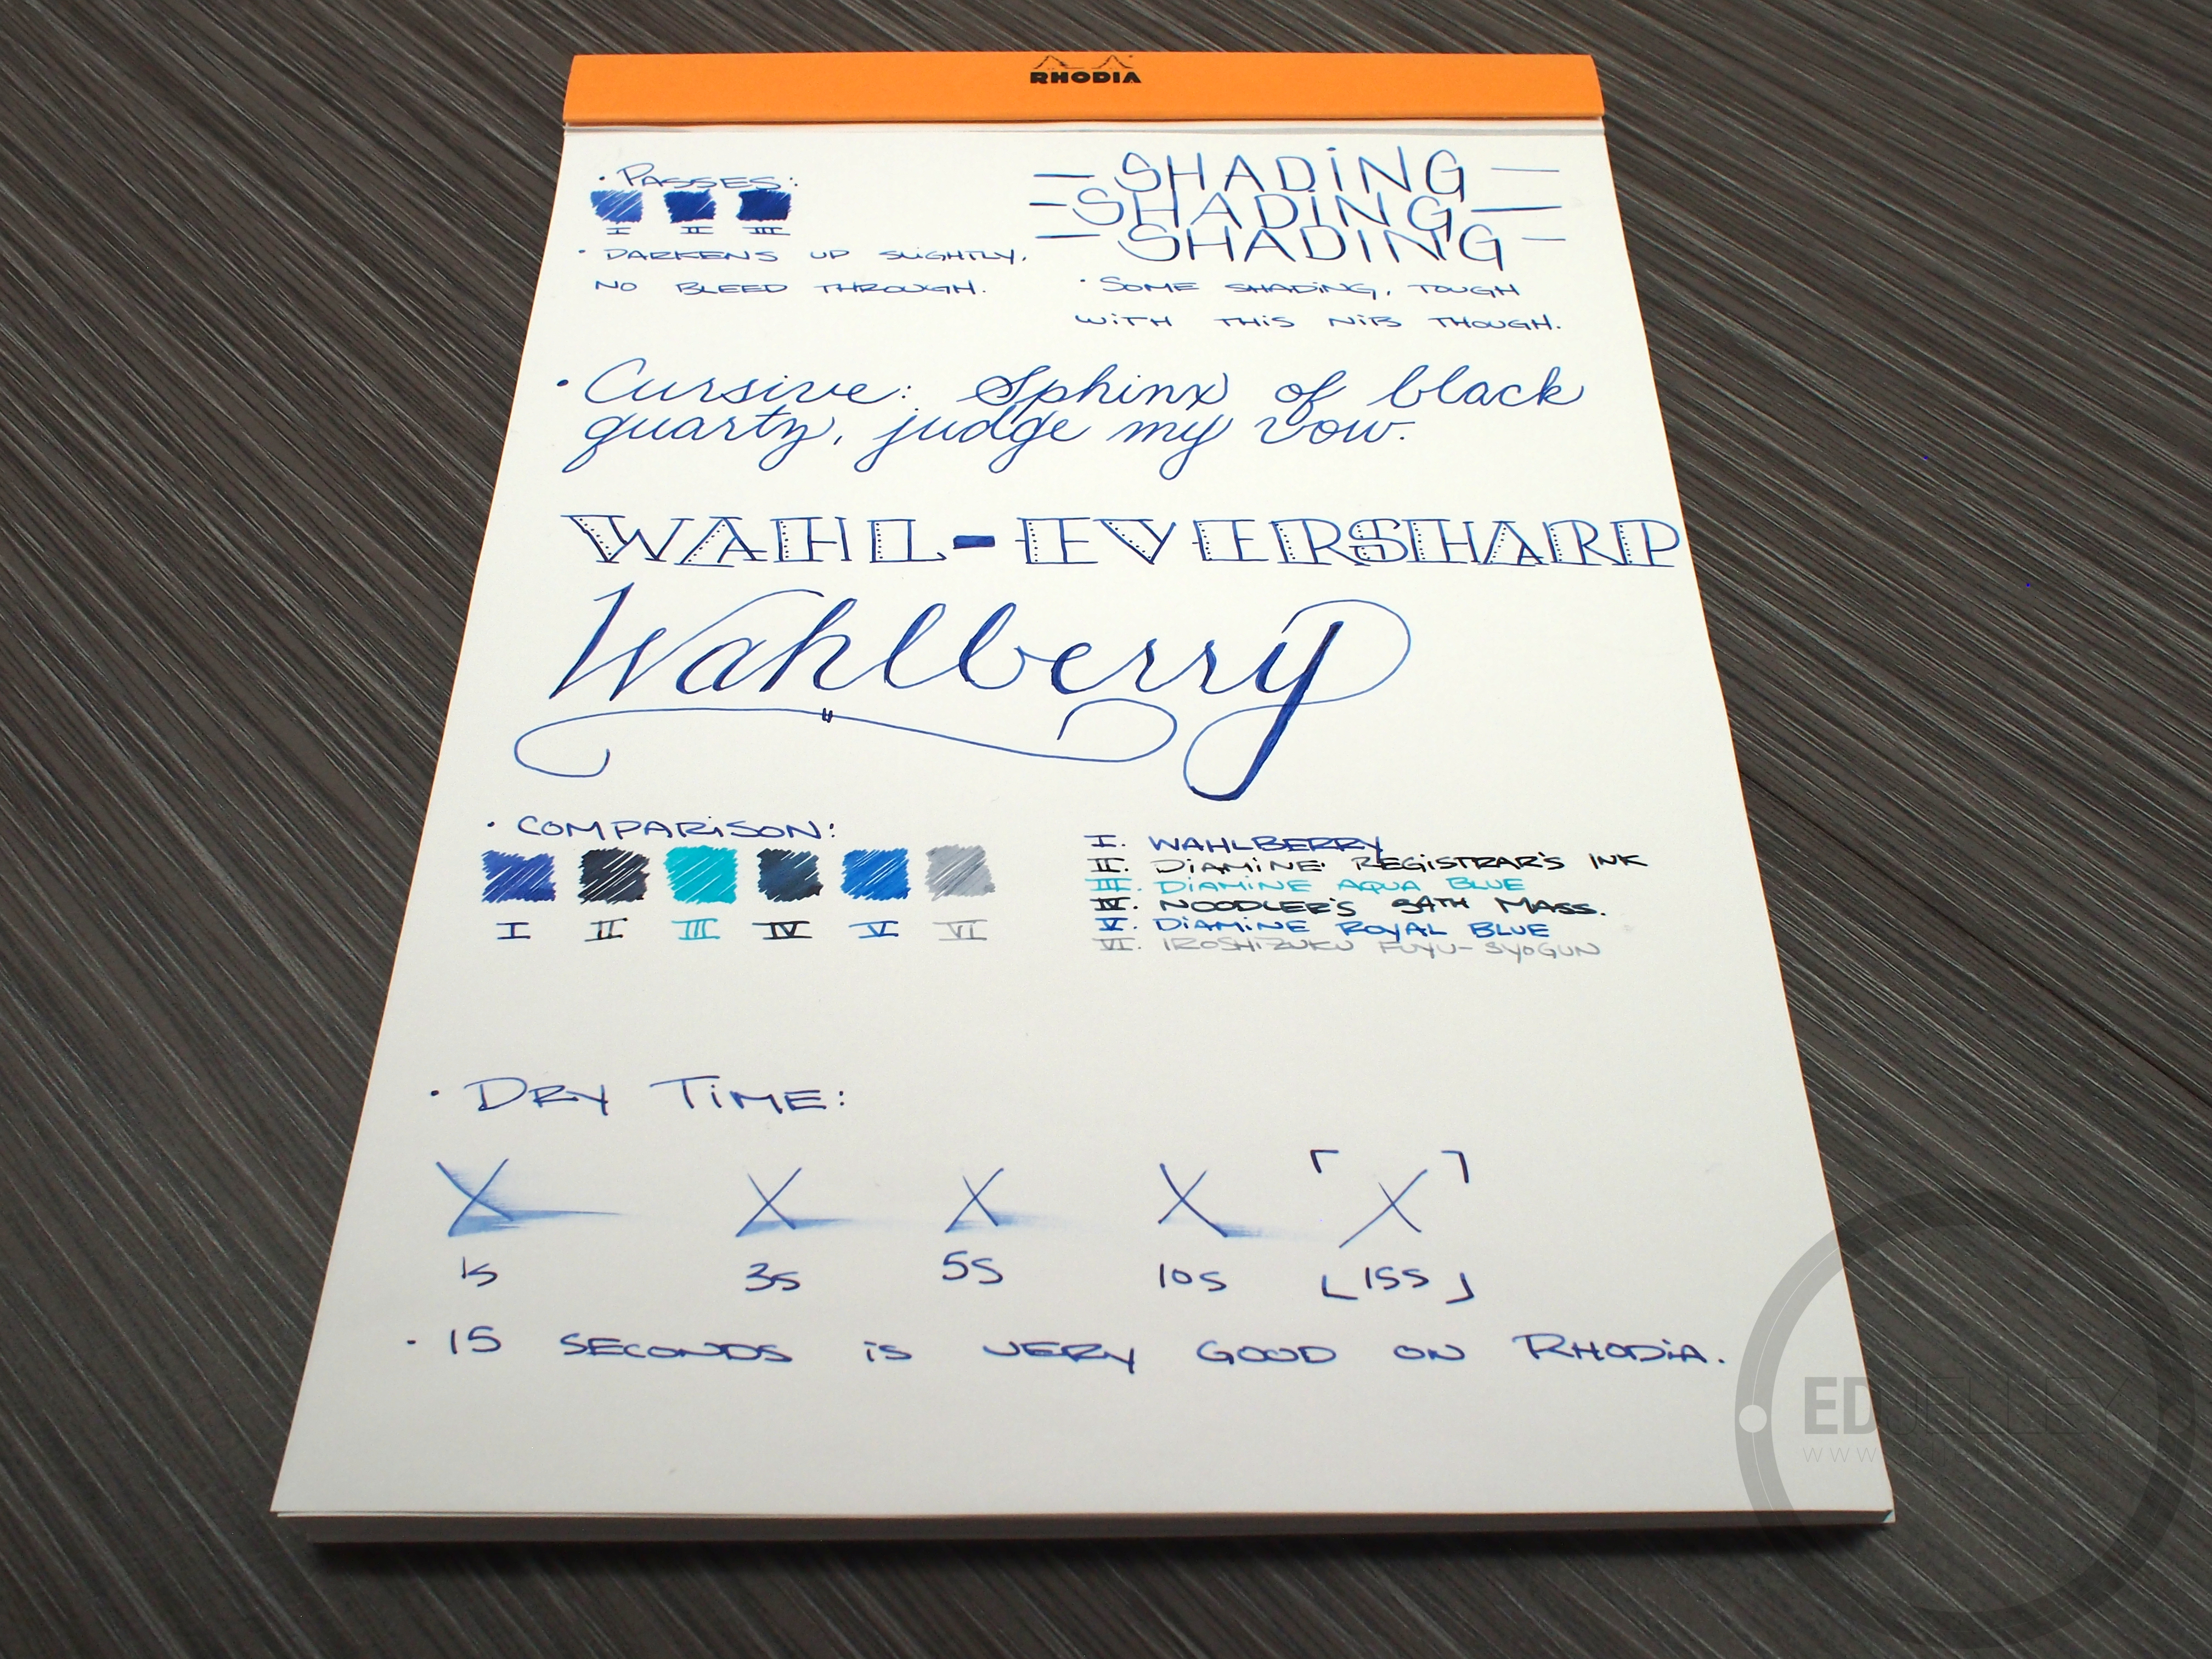 RHODIA
• PASSES:
I II III
• DARKENS UP SLiGHTLY,
NO BLEED THROUGH.
— SHADiNG —
— SHADiNG —
— SHADING —
• SOME SHADiNG, TOUGH
WiTH THiS NiB THOUGH.
• Cursive: Sphinx of black
quartz, judge my vow.
WAHL-EVERSHARP
Wahlberry
• COMPARiSON:
I II III IV V VI
I. WAHLBERRY
II. DiAMiNE REGiSTRAR'S INK
III. DiAMINE AQUA BLUE
IV. NOODLER'S 54TH MASS.
V. DiAMINE ROYAL BLUE
VI. IROSHiZUKU FUYU-SYOGUN
• DRY TiME:
X X X X X
1s 3s 5s 10s 15s
• 15 SECONDS iS VERY GOOD ON RHODiA.
EDJELLEY